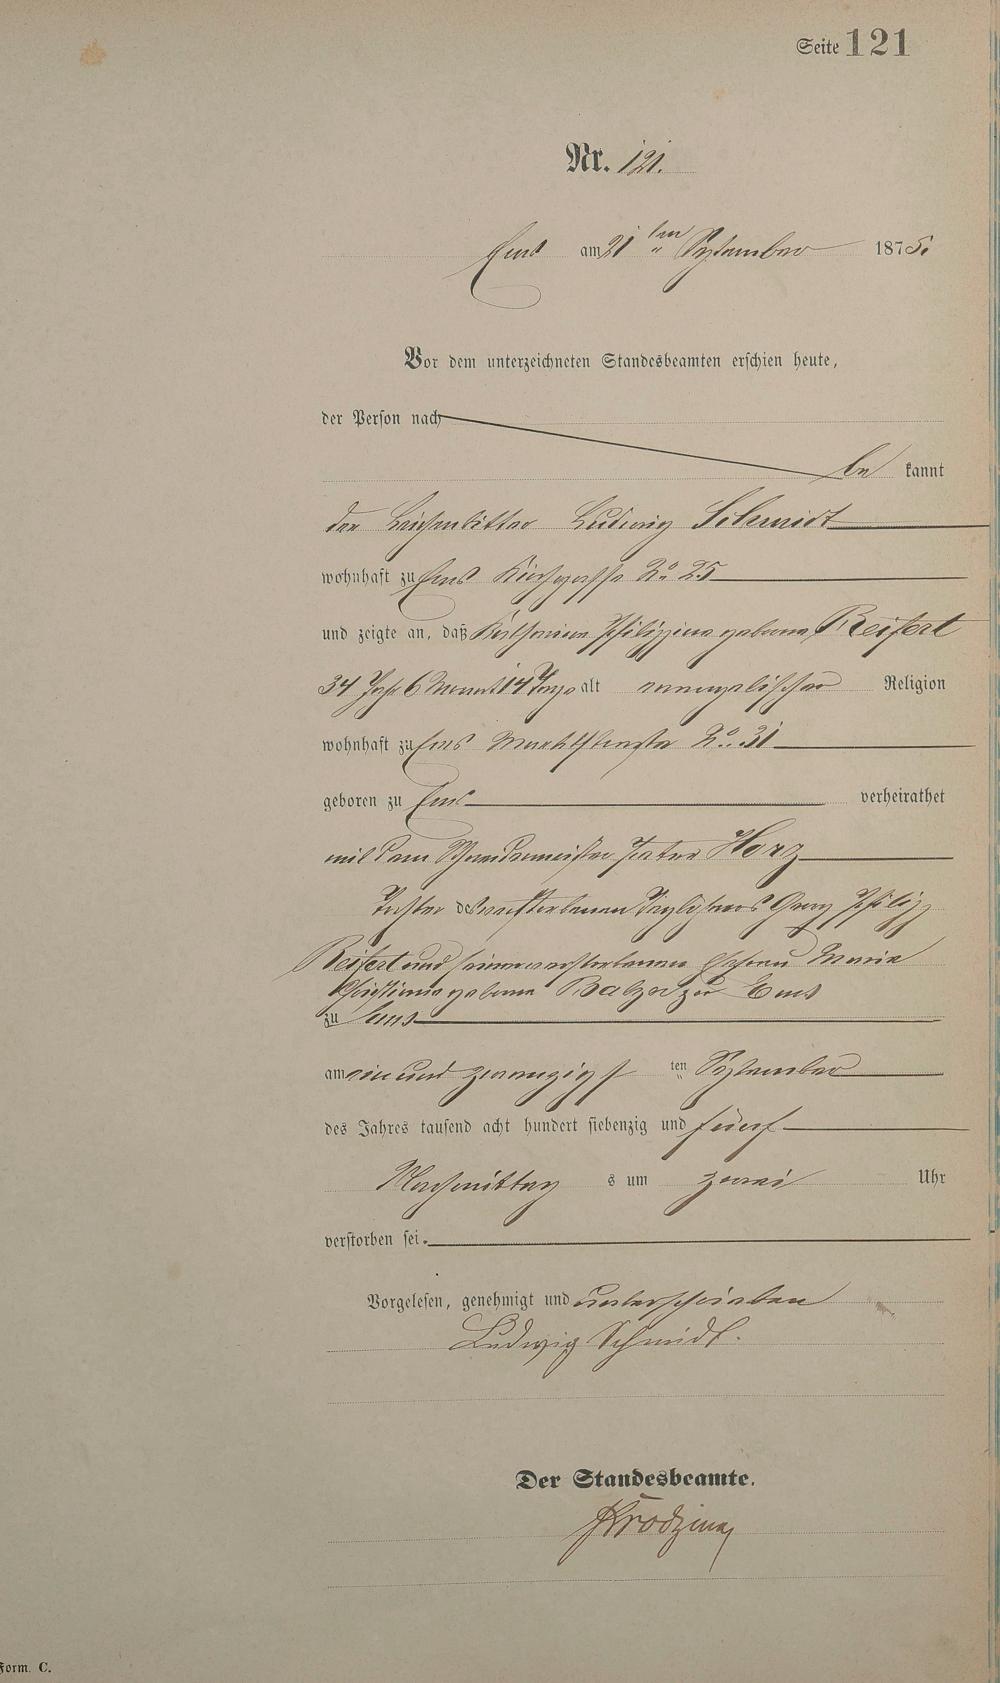 Seite 121
Nr. 121.
Ems am 21 ten September 1875.
Vor dem unterzeichneten Standesbeamten erschien heute,
der Person nach
be kannt
der Leichenbitter Ludwig Schmidt
wohnhaft zu Ems Kirchgasse No 25
und zeigte an, daß Katharina Philippina geborene Reifert
34 Jahr 6 Monat 14 Tage alt evangelischer Religion
wohnhaft zu Ems Marktstraße No. 31
geboren zu Ems verheirathet
mit dem Schneidermeister Peter Horz
Tochter des verstorbenen Georg Philipp
Reifert und seiner verstorbenen Ehefrau Maria
Christiana geborene Balzer zu Ems
zu Ems
am ein und zwanzigst ten September
des Jahres tausend acht hundert siebenzig und fünf
Nachmittag s um zwei Uhr
verstorben sei.
Vorgelesen, genehmigt und unterschrieben
Ludwig Schmidt.
Der Standesbeamte.
Form. C.